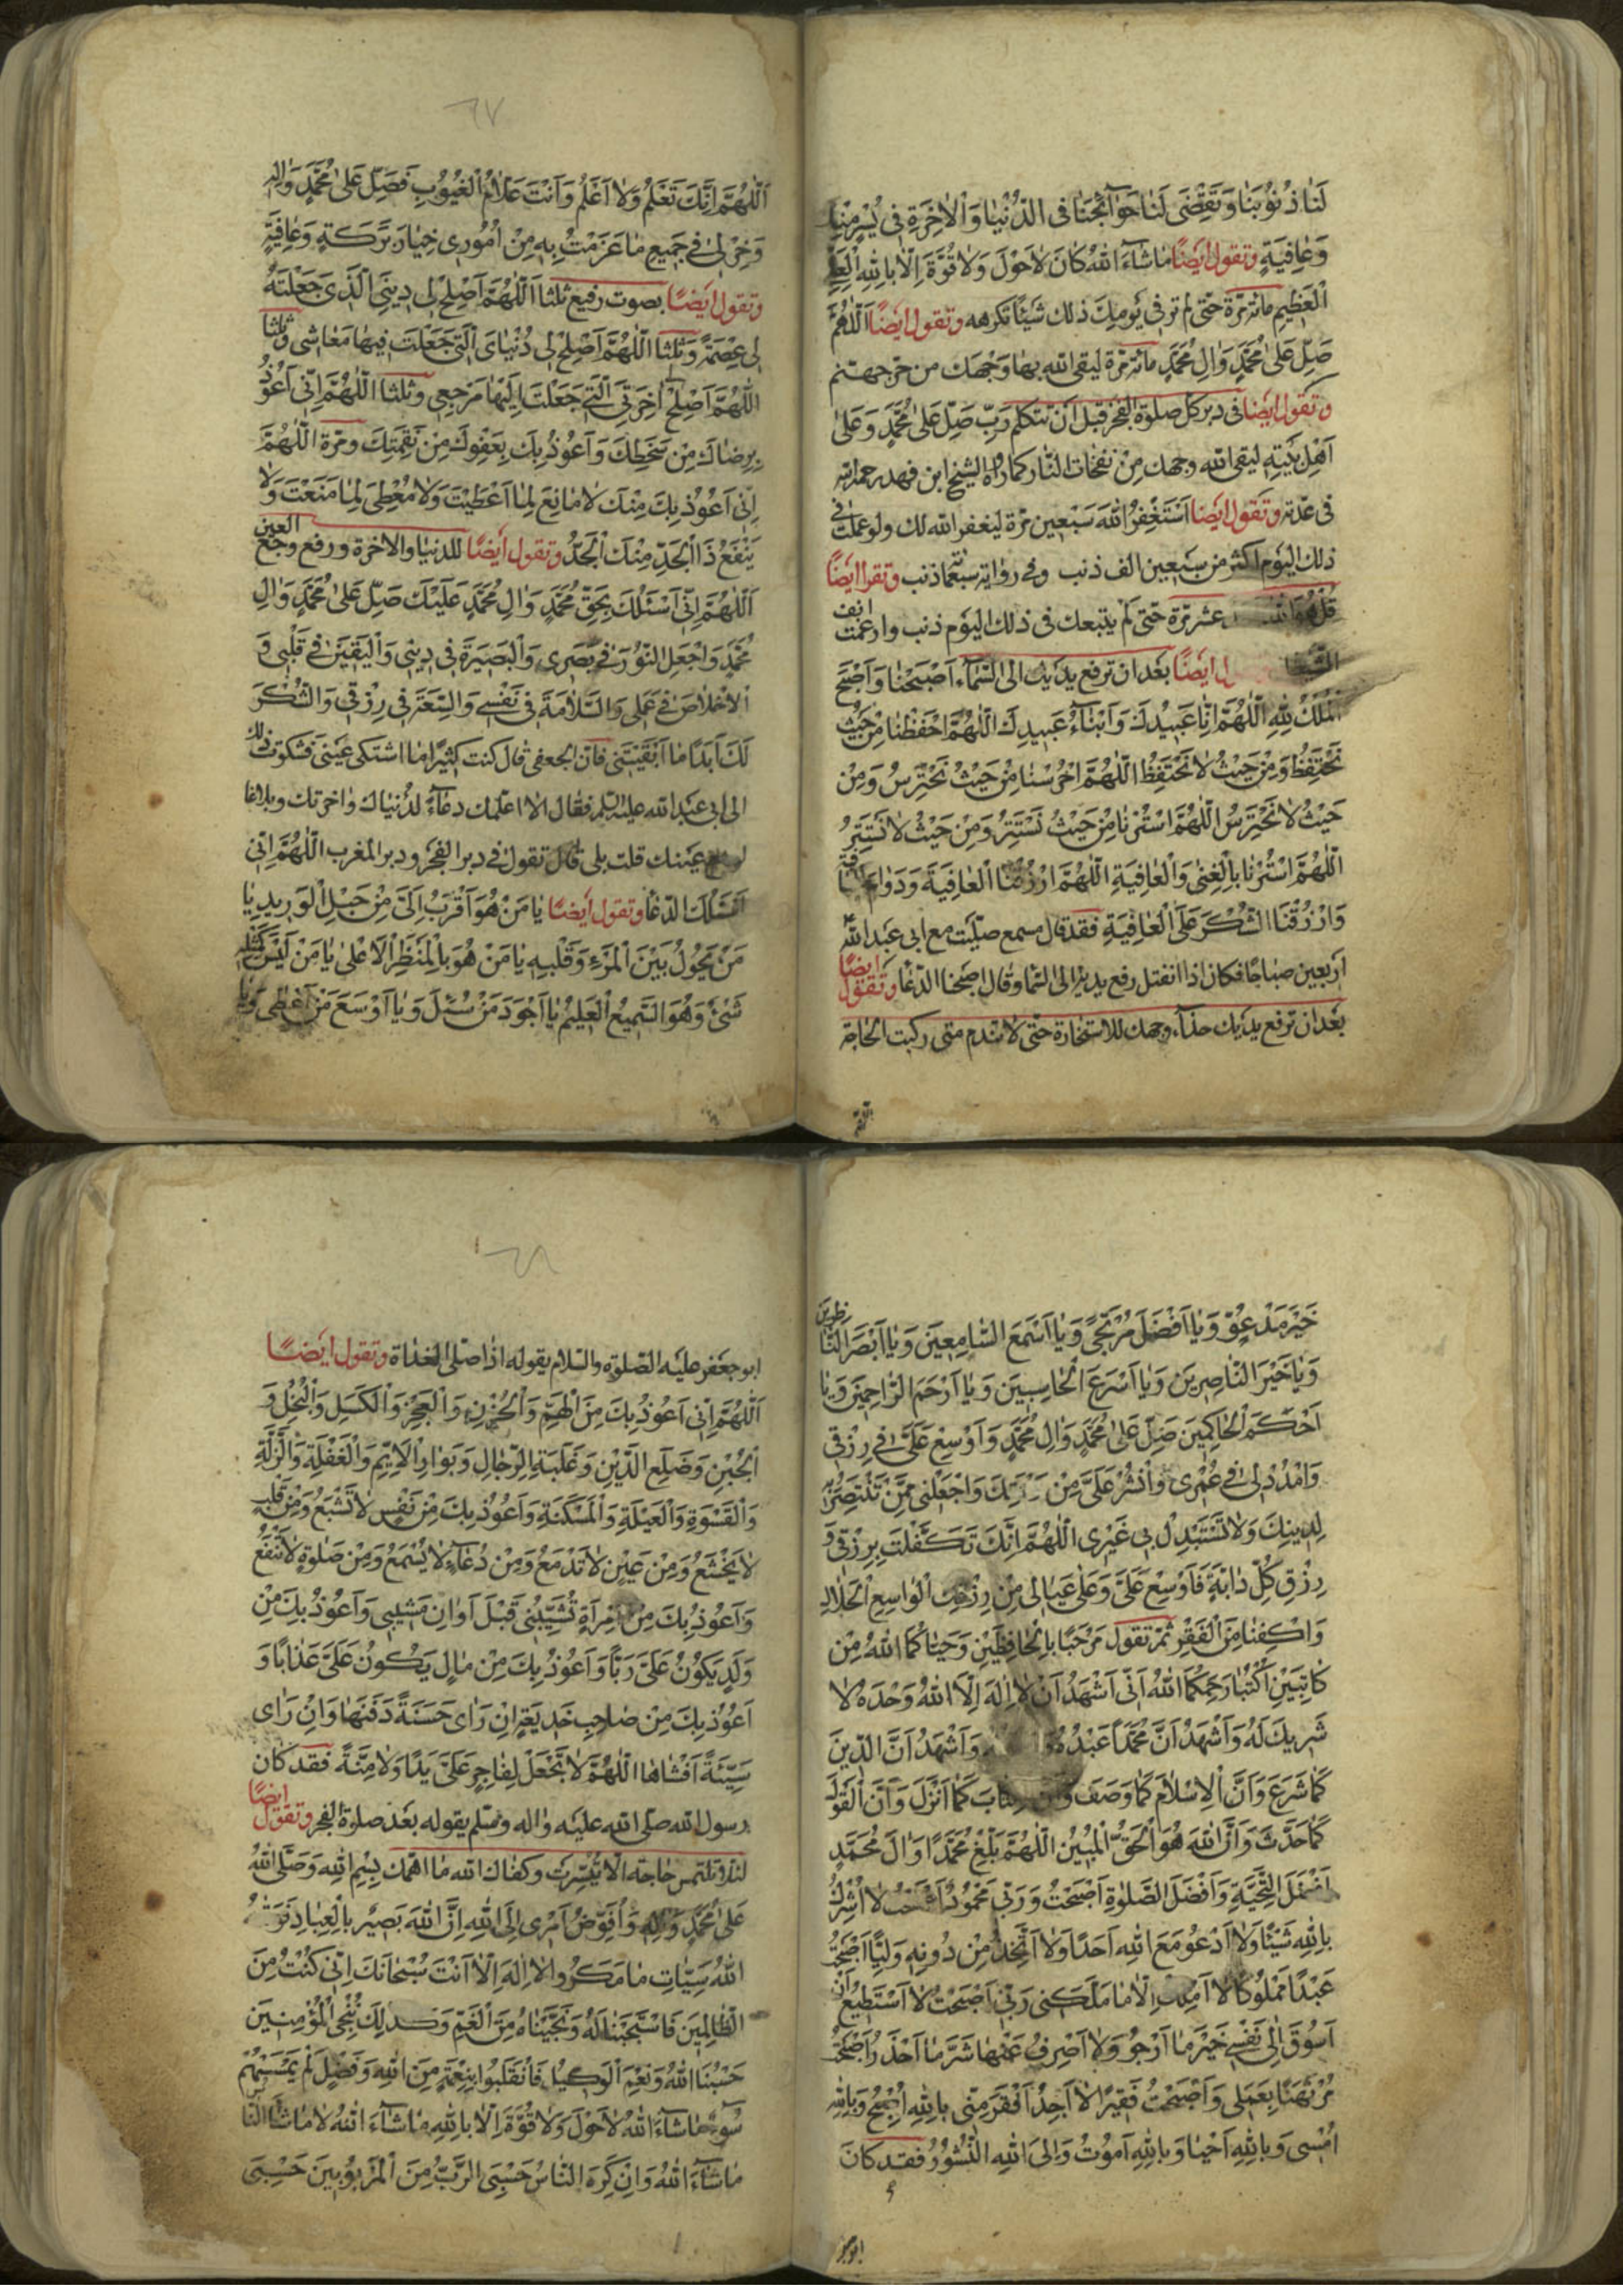 لَنَا ذُنُوبَنَا وَتَقْضِىَ لَنَا حَوَآئِجَنَا فِى الدُّنْيَا وَالْاٰخِرَةِ فِى يُسْرٍ مِنْكَ
وَعَافِيَةٍ وتقول ايضًا مَاشَآءَ اللهُ كَانَ لَاحَوْلَ وَلَا قُوَّةَ اِلَّا بِاللهِ الْعَلِىِّ
الْعَظِيمِ مائة مرّة حتّى لم تر فى يومك ذلك شيئًا تكرهه وتقول ايضًا اَللّٰهُمَّ
صَلِّ عَلىٰ مُحَمَّدٍ وَاٰلِ مُحَمَّدٍ مائة مرّة ليقى الله بها وجهك من حرّ جهنم
وتقول ايضا فى دبر كل صلوة الفجر قبل ان تتكلم رَبِّ صَلِّ عَلىٰ مُحَمَّدٍ وَعَلىٰ
اَهْلِ بَيْتِهِ ليقى الله وجهك من نفخات النّار كما رواه الشيخ ابن فهد رحمه الله
فى عدّته وتقول ايضا اَسْتَغْفِرُ اللهَ سبعين مرّة ليغفر الله لك ولو عملت فى
ذلك اليوم اكثر من سبعين الف ذنب وفى رواية سبعمائة ذنب وتقرا ايضًا
قل هو الله عشر مرّة حتّى لم يتبعك فى ذلك اليوم ذنب وان رغمت انف
ايضًا بعد ان ترفع يديك الى السّماء اَصْبَحْنَا وَاَصْبَحَ
الْمُلْكُ لِلّٰهِ اَللّٰهُمَّ اِنَّا عَبِيدُكَ وَاَبْنَآءُ عَبِيدِكَ اَللّٰهُمَّ احْفَظْنَا مِنْ حَيْثُ
نَحْتَفِظُ وَمِنْ حَيْثُ لَا نَحْتَفِظُ اَللّٰهُمَّ احْرُسْنَا مِنْ حَيْثُ نَحْتَرِسُ وَمِنْ
حَيْثُ لَا نَحْتَرِسُ اَللّٰهُمَّ اسْتُرْنَا مِنْ حَيْثُ نَسْتَتِرُ وَمِنْ حَيْثُ لَا نَسْتَتِرُ
اَللّٰهُمَّ اسْتُرْنَا بِالْغِنىٰ وَالْعَافِيَةِ اَللّٰهُمَّ ارْزُقْنَا الْعَافِيَةَ وَدَوَامَ الْعَافِيَةِ
وَارْزُقْنَا الشُّكْرَ عَلَى الْعَافِيَةِ فقد قال مسمع صلّيت مع ابى عبد الله
اربعين صباحًا فكان اذا انفتل رفع يديه الى السّما وقال اصبحنا الدّعا وتقول ايضًا
بعد ان ترفع يديك حذاء وجهك للاستخارة حتّى لا تندم متى ركبت الحاجة
اللّهمّ
٦٧
اَللّٰهُمَّ اِنَّكَ تَعْلَمُ وَلَا اَعْلَمُ وَاَنْتَ عَلَّامُ الْغُيُوبِ فَصَلِّ عَلىٰ مُحَمَّدٍ وَاٰلِهِ
وَخِرْ لِى فِى جَمِيعِ مَا عَزَمْتُ بِهِ مِنْ اُمُورِى خِيَارَ بَرَكَةٍ وَعَافِيَةٍ
وتقول ايضًا بصوت رفيع ثلثا اَللّٰهُمَّ اَصْلِحْ لِى دِينِىَ الَّذِى جَعَلْتَهُ
لِى عِصْمَةً وثلثا اَللّٰهُمَّ اَصْلِحْ لِى دُنْيَاىَ الَّتِى جَعَلْتَ فِيهَا مَعَاشِى وثلثا
اَللّٰهُمَّ اَصْلِحْ اٰخِرَتِى الَّتِى جَعَلْتَ اِلَيْهَا مَرْجِعِى وثلثا اَللّٰهُمَّ اِنِّى اَعُوذُ
بِرِضَاكَ مِنْ سَخَطِكَ وَاَعُوذُ بِكَ بِعَفْوِكَ مِنْ نَقِمَتِكَ ومرّة اَللّٰهُمَّ
اِنِّى اَعُوذُ بِكَ مِنْكَ لَا مَانِعَ لِمَا اَعْطَيْتَ وَلَا مُعْطِىَ لِمَا مَنَعْتَ وَلَا
يَنْفَعُ ذَا الْجَدِّ مِنْكَ الْجَدُّ وتقول ايضًا للدنيا والاخرة ورفع وجع العين
اَللّٰهُمَّ اِنِّى اَسْئَلُكَ بِحَقِّ مُحَمَّدٍ وَاٰلِ مُحَمَّدٍ عَلَيْكَ صَلِّ عَلىٰ مُحَمَّدٍ وَاٰلِ
مُحَمَّدٍ وَاجْعَلِ النُّورَ فِى بَصَرِى وَالْبَصِيرَةَ فِى دِينِى وَالْيَقِينَ فِى قَلْبِى وَ
الْاِخْلَاصَ فِى عَمَلِى وَالسَّلَامَةَ فِى نَفْسِى وَالسَّعَةَ فِى رِزْقِى وَالشُّكْرَ
لَكَ اَبَدًا مَا اَبْقَيْتَنِى فان الجعفى قال كنت كثيرًا ما اشتكى عينى فشكوت ذلك
الى ابى عبد الله عليه السّلم فقال الا اعلّمك دعاءً لدنياك واخرتك وبلاغا
لوجع عينك قلت بلى قال تقول فى دبر الفجر ودبر المغرب اَللّٰهُمَّ اِنِّى
اَسْئَلُكَ الدّعا وتقول ايضًا يَا مَنْ هُوَ اَقْرَبُ اِلَىَّ مِنْ حَبْلِ الْوَرِيدِ يَا
مَنْ يَحُولُ بَيْنَ الْمَرْءِ وَقَلْبِهِ يَا مَنْ هُوَ بِالْمَنْظَرِ الْاَعْلىٰ يَا مَنْ لَيْسَ كَمِثْلِهِ
شَىْءٌ وَهُوَ السَّمِيعُ الْعَلِيمُ يَا اَجْوَدَ مَنْ سُئِلَ وَيَا اَوْسَعَ مَنْ اَعْطىٰ وَيَا
خَيْرَ مَدْعُوٍّ وَيَا اَفْضَلَ مُرْتَجًى وَيَا اَسْمَعَ السَّامِعِينَ وَيَا اَبْصَرَ النَّاظِرِينَ
وَيَا خَيْرَ النَّاصِرِينَ وَيَا اَسْرَعَ الْحَاسِبِينَ وَيَا اَرْحَمَ الرَّاحِمِينَ وَيَا
اَحْكَمَ الْحَاكِمِينَ صَلِّ عَلىٰ مُحَمَّدٍ وَاٰلِ مُحَمَّدٍ وَاَوْسِعْ عَلَىَّ فِى رِزْقِى
وَامْدُدْ لِى فِى عُمْرِى وَانْشُرْ عَلَىَّ مِنْ رَحْمَتِكَ وَاجْعَلْنِى مِمَّنْ تَنْتَصِرُ بِهِ
لِدِينِكَ وَلَا تَسْتَبْدِلْ بِى غَيْرِى اَللّٰهُمَّ اِنَّكَ تَكَفَّلْتَ بِرِزْقِى وَ
رِزْقِ كُلِّ دَابَّةٍ فَاَوْسِعْ عَلَىَّ وَعَلىٰ عِيَالِى مِنْ رِزْقِكَ الْوَاسِعِ الْحَلَالِ
وَاكْفِنَا مِنَ الْفَقْرِ ثم تقول مَرْحَبًا بِالْحَافِظَيْنِ وَحَيَّاكُمَا اللهُ مِنْ
كَاتِبَيْنِ اُكْتُبَا رَحِمَكُمَا اللهُ اَنِّى اَشْهَدُ اَنْ لَا اِلٰهَ اِلَّا اللهُ وَحْدَهُ لَا
شَرِيكَ لَهُ وَاَشْهَدُ اَنَّ مُحَمَّدًا عَبْدُهُ وَاَشْهَدُ اَنَّ الدِّينَ
كَمَا شَرَعَ وَاَنَّ الْاِسْلَامَ كَمَا وَصَفَ وَاَنَّ الْكِتَابَ كَمَا اَنْزَلَ وَاَنَّ الْقَوْلَ
كَمَا حَدَّثَ وَاَنَّ اللهَ هُوَ الْحَقُّ الْمُبِينُ اَللّٰهُمَّ بَلِّغْ مُحَمَّدًا وَاٰلَ مُحَمَّدٍ
اَفْضَلَ التَّحِيَّةِ وَاَفْضَلَ الصَّلٰوةِ اَصْبَحْتُ وَرَبِّى مَحْمُودٌ اَصْبَحْتُ لَا اُشْرِكُ
بِاللهِ شَيْئًا وَلَا اَدْعُو مَعَ اللهِ اَحَدًا وَلَا اَتَّخِذُ مِنْ دُونِهِ وَلِيًّا اَصْبَحْتُ
عَبْدًا مَمْلُوكًا لَا اَمْلِكُ اِلَّا مَا مَلَّكَنِى رَبِّى اَصْبَحْتُ لَا اَسْتَطِيعُ اَنْ
اَسُوقَ اِلىٰ نَفْسِى خَيْرَ مَا اَرْجُو وَلَا اَصْرِفُ عَنْهَا شَرَّ مَا اَحْذَرُ اَصْبَحْتُ
مُرْتَهَنًا بِعَمَلِى وَاَصْبَحْتُ فَقِيرًا لَا اَجِدُ اَفْقَرَ مِنِّى بِاللهِ اُصْبِحُ وَبِاللهِ
اُمْسِى وَبِاللهِ اَحْيَا وَبِاللهِ اَمُوتُ وَاِلَى اللهِ النُّشُورُ فقد كان
ابوجعفر
٦٨
ابو جعفر عليه الصّلوة والسّلام يقوله اذا صلّى الغداة وتقول ايضًا
اَللّٰهُمَّ اِنِّى اَعُوذُ بِكَ مِنَ الْهَمِّ وَالْحُزْنِ وَالْعَجْزِ وَالْكَسَلِ وَالْبُخْلِ وَ
الْجُبْنِ وَضَلَعِ الدَّيْنِ وَغَلَبَةِ الرِّجَالِ وَبَوَارِ الْاَيِّمِ وَالْغَفْلَةِ وَالزَّلَّةِ
وَالْقَسْوَةِ وَالْعَيْلَةِ وَالْمَسْكَنَةِ وَاَعُوذُ بِكَ مِنْ نَفْسٍ لَا تَشْبَعُ وَمِنْ قَلْبٍ
لَا يَخْشَعُ وَمِنْ عَيْنٍ لَا تَدْمَعُ وَمِنْ دُعَآءٍ لَا يُسْمَعُ وَمِنْ صَلٰوةٍ لَا تَنْفَعُ
وَاَعُوذُ بِكَ مِنِ امْرِأَةٍ تُشَيِّبُنِى قَبْلَ اَوَانِ مَشِيبِى وَاَعُوذُ بِكَ مِنْ
وَلَدٍ يَكُونُ عَلَىَّ رَبًّا وَاَعُوذُ بِكَ مِنْ مَالٍ يَكُونُ عَلَىَّ عَذَابًا وَ
اَعُوذُ بِكَ مِنْ صَاحِبِ خَدِيعَةٍ اِنْ رَاٰى حَسَنَةً دَفَنَهَا وَاِنْ رَاٰى
سَيِّئَةً اَفْشَاهَا اَللّٰهُمَّ لَا تَجْعَلْ لِفَاجِرٍ عَلَىَّ يَدًا وَلَا مِنَّةً فقد كان
رسول الله صلّى الله عليه واله وسلّم يقوله بعد صلوة الفجر وتقول ايضًا
لئلا تلتمس حاجة الا تيسّرت وكفاك الله ما اهمّك بِسْمِ اللهِ وَصَلَّى اللهُ
عَلىٰ مُحَمَّدٍ وَاٰلِهِ وَاُفَوِّضُ اَمْرِى اِلَى اللهِ اِنَّ اللهَ بَصِيرٌ بِالْعِبَادِ فَوَقٰيهُ
اللهُ سَيِّاٰتِ مَا مَكَرُوا لَا اِلٰهَ اِلَّا اَنْتَ سُبْحَانَكَ اِنِّى كُنْتُ مِنَ
الظَّالِمِينَ فَاسْتَجَبْنَا لَهُ وَنَجَّيْنَاهُ مِنَ الْغَمِّ وَكَذٰلِكَ نُنْجِى الْمُؤْمِنِينَ
حَسْبُنَا اللهُ وَنِعْمَ الْوَكِيلُ فَانْقَلَبُوا بِنِعْمَةٍ مِنَ اللهِ وَفَضْلٍ لَمْ يَمْسَسْهُمْ
سُوءٌ مَاشَآءَ اللهُ لَاحَوْلَ وَلَا قُوَّةَ اِلَّا بِاللهِ مَاشَآءَ اللهُ لَا مَا شَآءَ النَّاسُ
مَاشَآءَ اللهُ وَاِنْ كَرِهَ النَّاسُ حَسْبِىَ الرَّبُّ مِنَ الْمَرْبُوبِينَ حَسْبِىَ